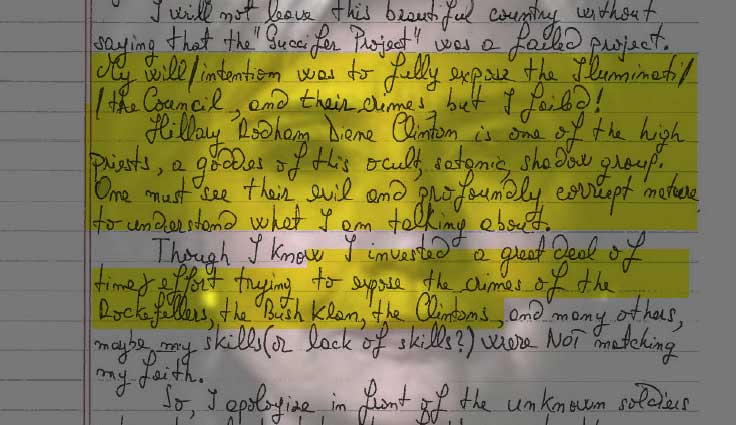 I will not leave this beautiful country without
saying that the "Guccifer Project" was a failed project.
My will/intention was to fully expose the Iluminati/
/the Council, and their crimes, but I failed!
Hillary Rodham Diane Clinton is one of the high
priests, a goddes of this ocult, satanic, shadow group.
One must see their evil and profoundly corrupt nature
to understand what I am talking about.
Though I know I invested a great deal of
time & effort trying to expose the crimes of the
Rockefellers, the Bush Klan, the Clintons, and many others,
maybe my skills (or lack of skills?) were NOT matching
my faith.
So, I apologize in front of the unknown soldiers